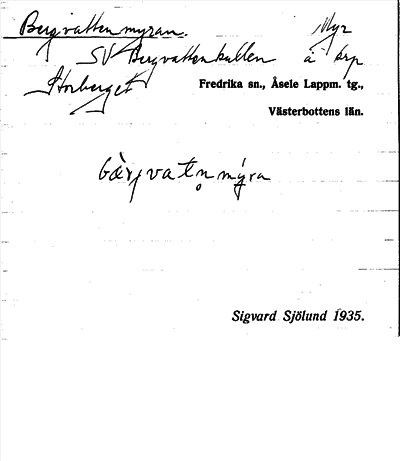 Bergvattenmyran. Myr
SV Bergvattenkullen å krp
Storberget
Fredrika sn., Åsele Lappm. tg.,
Västerbottens län.
Sigvard Sjölund 1935.